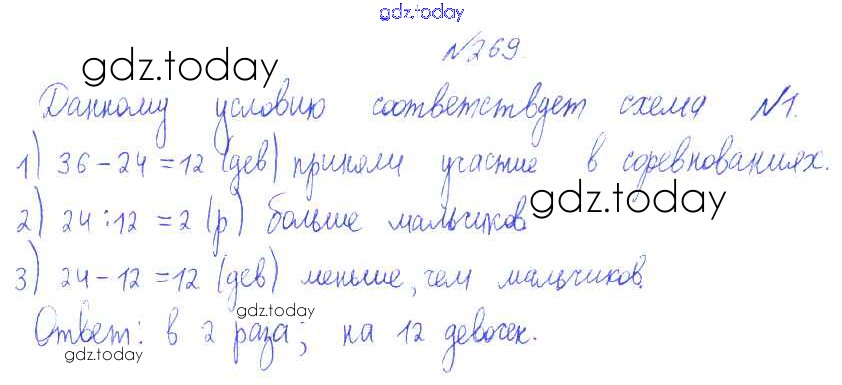 gdz.today
№269.
gdz.today
Данному условию соответствует схема №1.
1) 36-24=12 (дев) приняли участие в соревнованиях.
2) 24:12=2 (р) больше мальчиков
gdz.today
3) 24-12=12 (дев) меньше, чем мальчиков.
gdz.today
Ответ: в 2 раза; на 12 девочек.
gdz.today